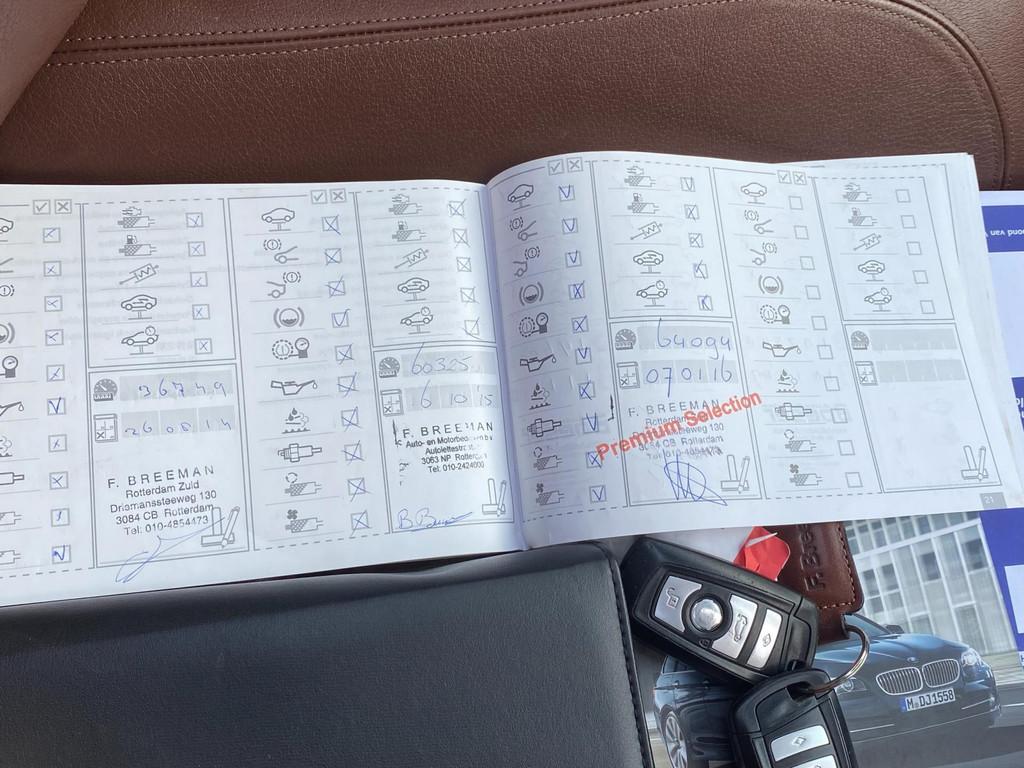 36749
26 08 14
F. BREEMAN
Rotterdam Zuid
Driemanssteeweg 130
3084 CB Rotterdam
Tel: 010-4854473
60325
6 10 15
F. BREEMAN
Auto- en
3063 NP
Tel: 010-2424000
64094
07 01 16
F. BREEMAN
130
3084 CB Rotterdam
Tel: 010-4854473
Premium Selection
21
F. Bree
M DJ1558